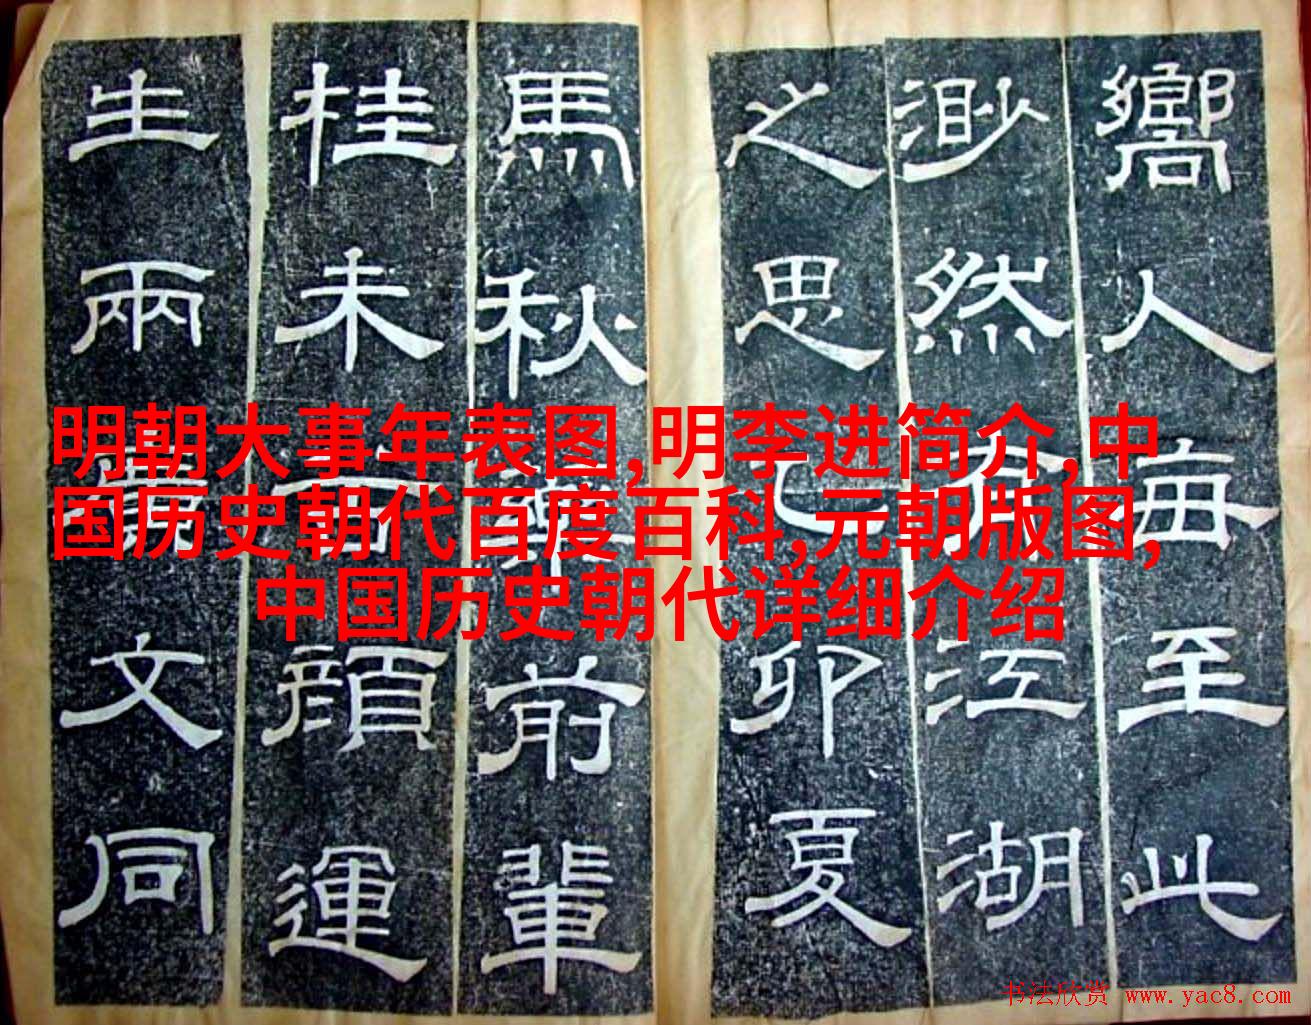 嚮人每至此
渺然有江湖
之思己卯夏
馬秋前輩
桂未谷顏運
生兩文同
明朝大事年表图,明李进简介,中
国历史朝代百度百科,元朝版图,
中国历史朝代详细介绍
书法欣赏 www.yac8.com